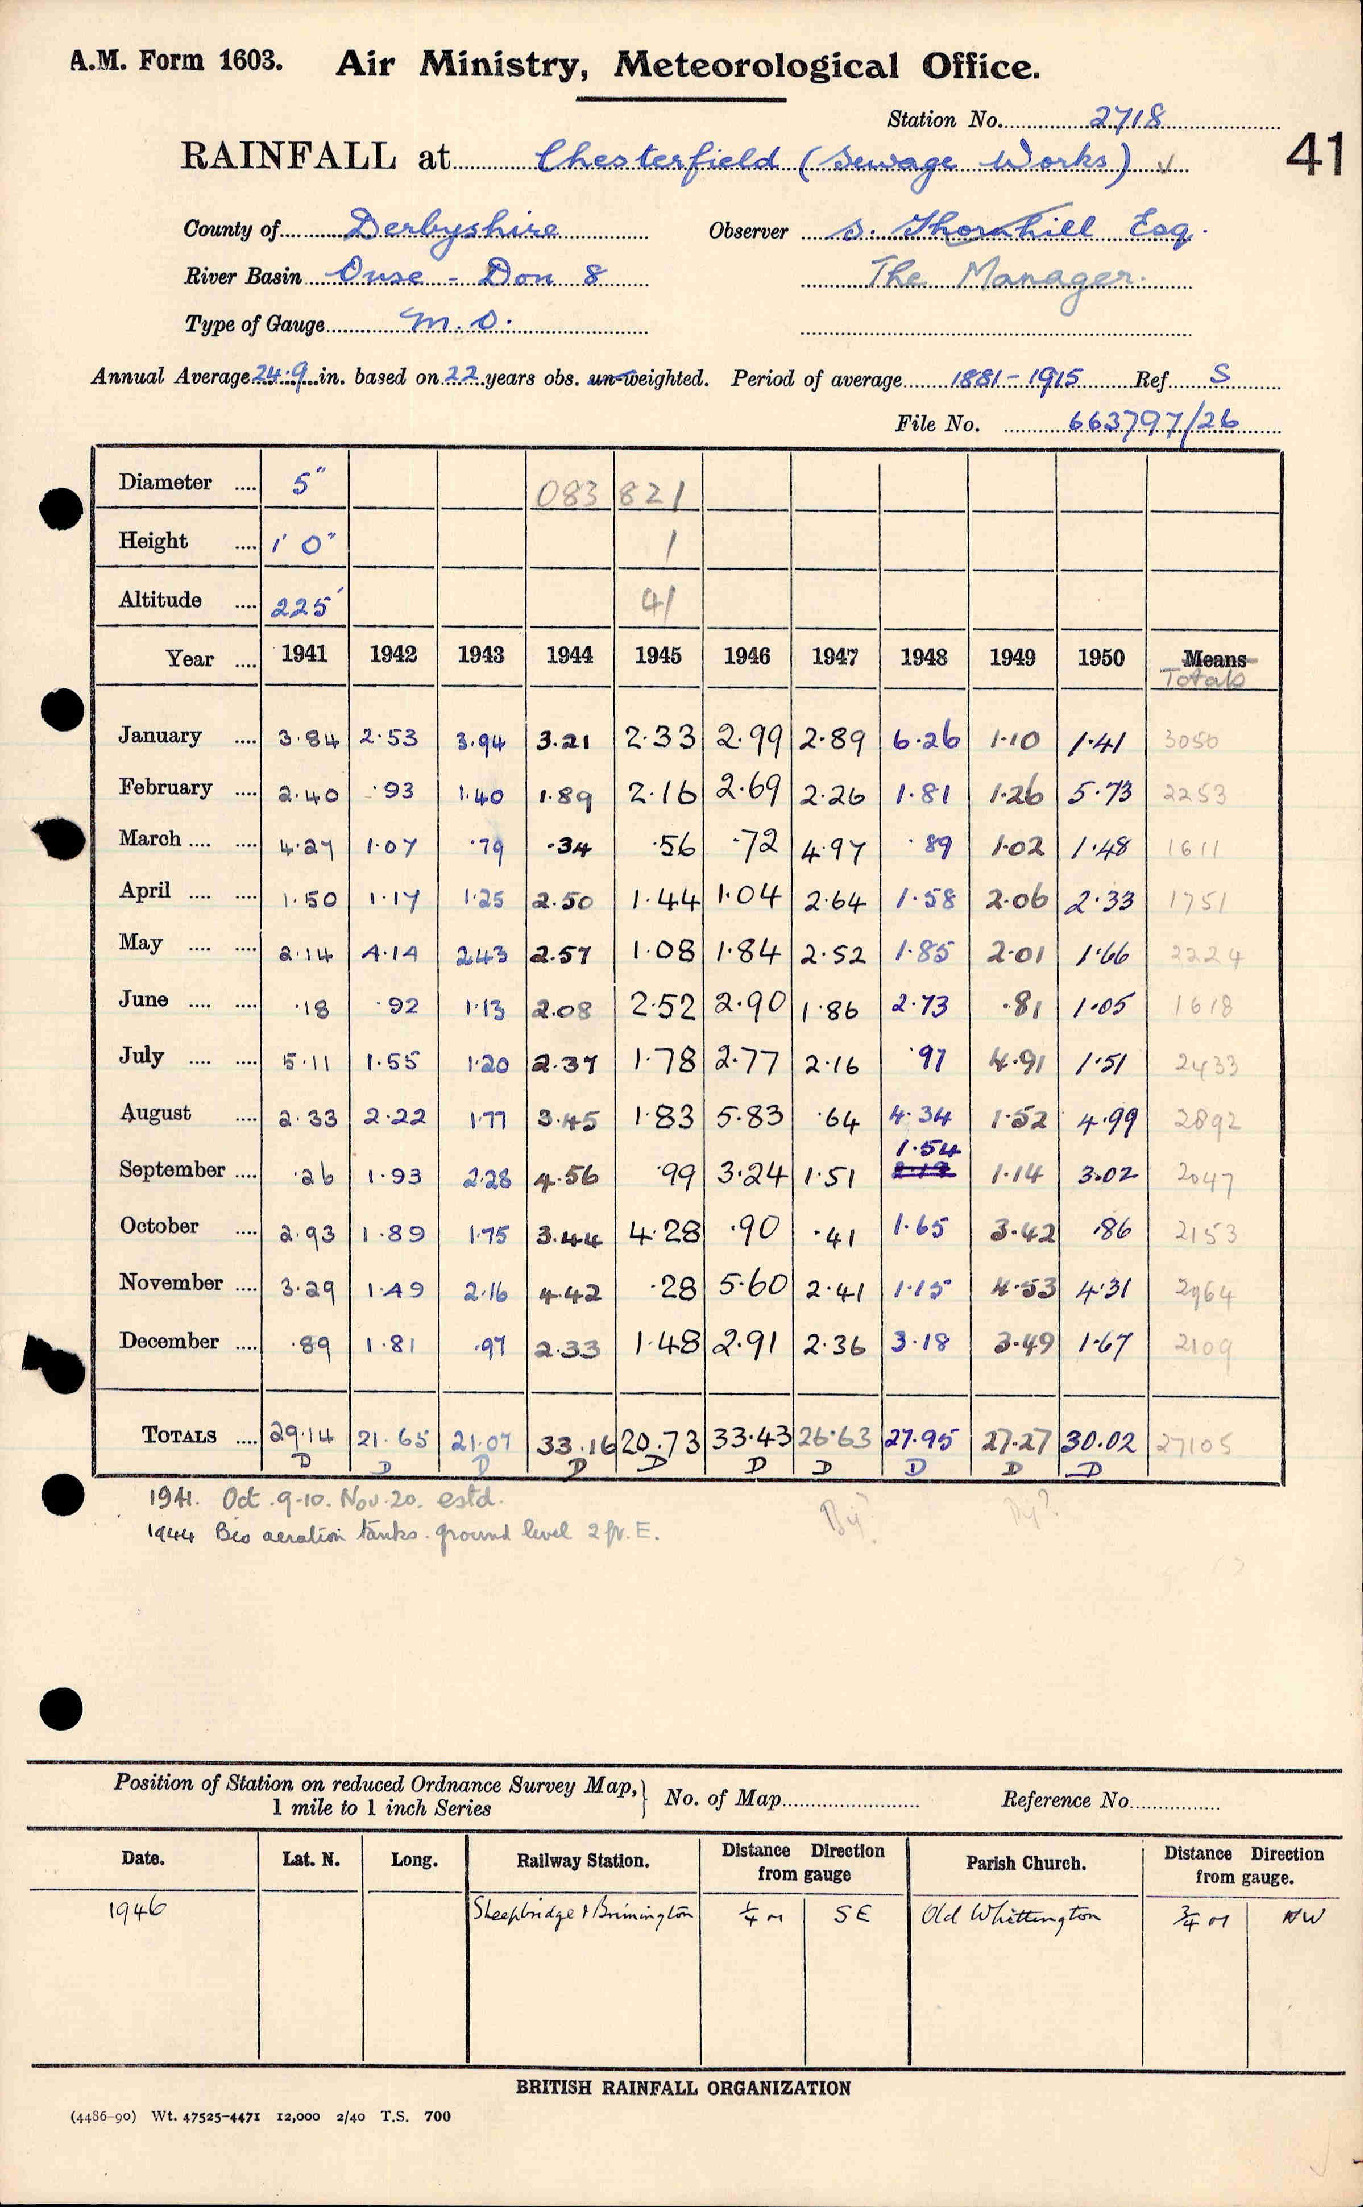 A.M. Form 1603. Air Ministry, Meteorological Office.
Station No. 2718
RAINFALL at Chesterfield (Sewage Works) ✓
41
County of Derbyshire Observer S. Thornhill Esq.
River Basin Ouse - Don 8 The Manager.
Type of Gauge M.O.
Annual Average 24.9 in. based on 22 years obs. un-weighted. Period of average 1881-1915 Ref S
File No. 663797/26
Diameter .... 5" 083 821
Height .... 1' 0" 1
Altitude .... 225' 41
Year .... 1941 1942 1943 1944 1945 1946 1947 1948 1949 1950 Means
Totals
January .... 3.84 2.53 3.94 3.21 2.33 2.99 2.89 6.26 1.10 1.41 3050
February .... 2.40 .93 1.40 1.89 2.16 2.69 2.26 1.81 1.26 5.73 2253
March .... .... 4.27 1.07 .79 .34 .56 .72 4.97 .89 1.02 1.48 1611
April .... .... 1.50 1.17 1.25 2.50 1.44 1.04 2.64 1.58 2.06 2.33 1751
May .... .... 2.14 4.14 2.43 2.57 1.08 1.84 2.52 1.85 2.01 1.66 2224
June .... .... .18 .92 1.13 2.08 2.52 2.90 1.86 2.73 .81 1.05 1618
July .... .... 5.11 1.55 1.20 2.37 1.78 2.77 2.16 .97 4.91 1.51 2433
August .... 2.33 2.22 1.77 3.45 1.83 5.83 .64 4.34 1.52 4.99 2892
September .... .26 1.93 2.28 4.56 .99 3.24 1.51 1.54 1.14 3.02 2047
October .... 2.93 1.89 1.75 3.44 4.28 .90 .41 1.65 3.42 .86 2153
November .... 3.29 1.49 2.16 4.42 .28 5.60 2.41 1.15 4.53 4.31 2964
December .... .89 1.81 .97 2.33 1.48 2.91 2.36 3.18 3.49 1.67 2109
TOTALS .... 29.14 21.65 21.07 33.16 20.73 33.43 26.63 27.95 27.27 30.02 27105
D D D D D D D D D D
1941. Oct. 9-10. Nov. 20. estd.
1944 Bio aeration tanks. ground level 2 ft. E.
Position of Station on reduced Ordnance Survey Map,
1 mile to 1 inch Series
No. of Map Reference No.
Date. Lat. N. Long. Railway Station. Distance Direction from gauge Parish Church. Distance Direction from gauge.
1946 Sheepbridge & Brimington ¼ m SE Old Whittington ¾ m NW
BRITISH RAINFALL ORGANIZATION
(4486-90) Wt. 47525-4471 12,000 2/40 T.S. 700